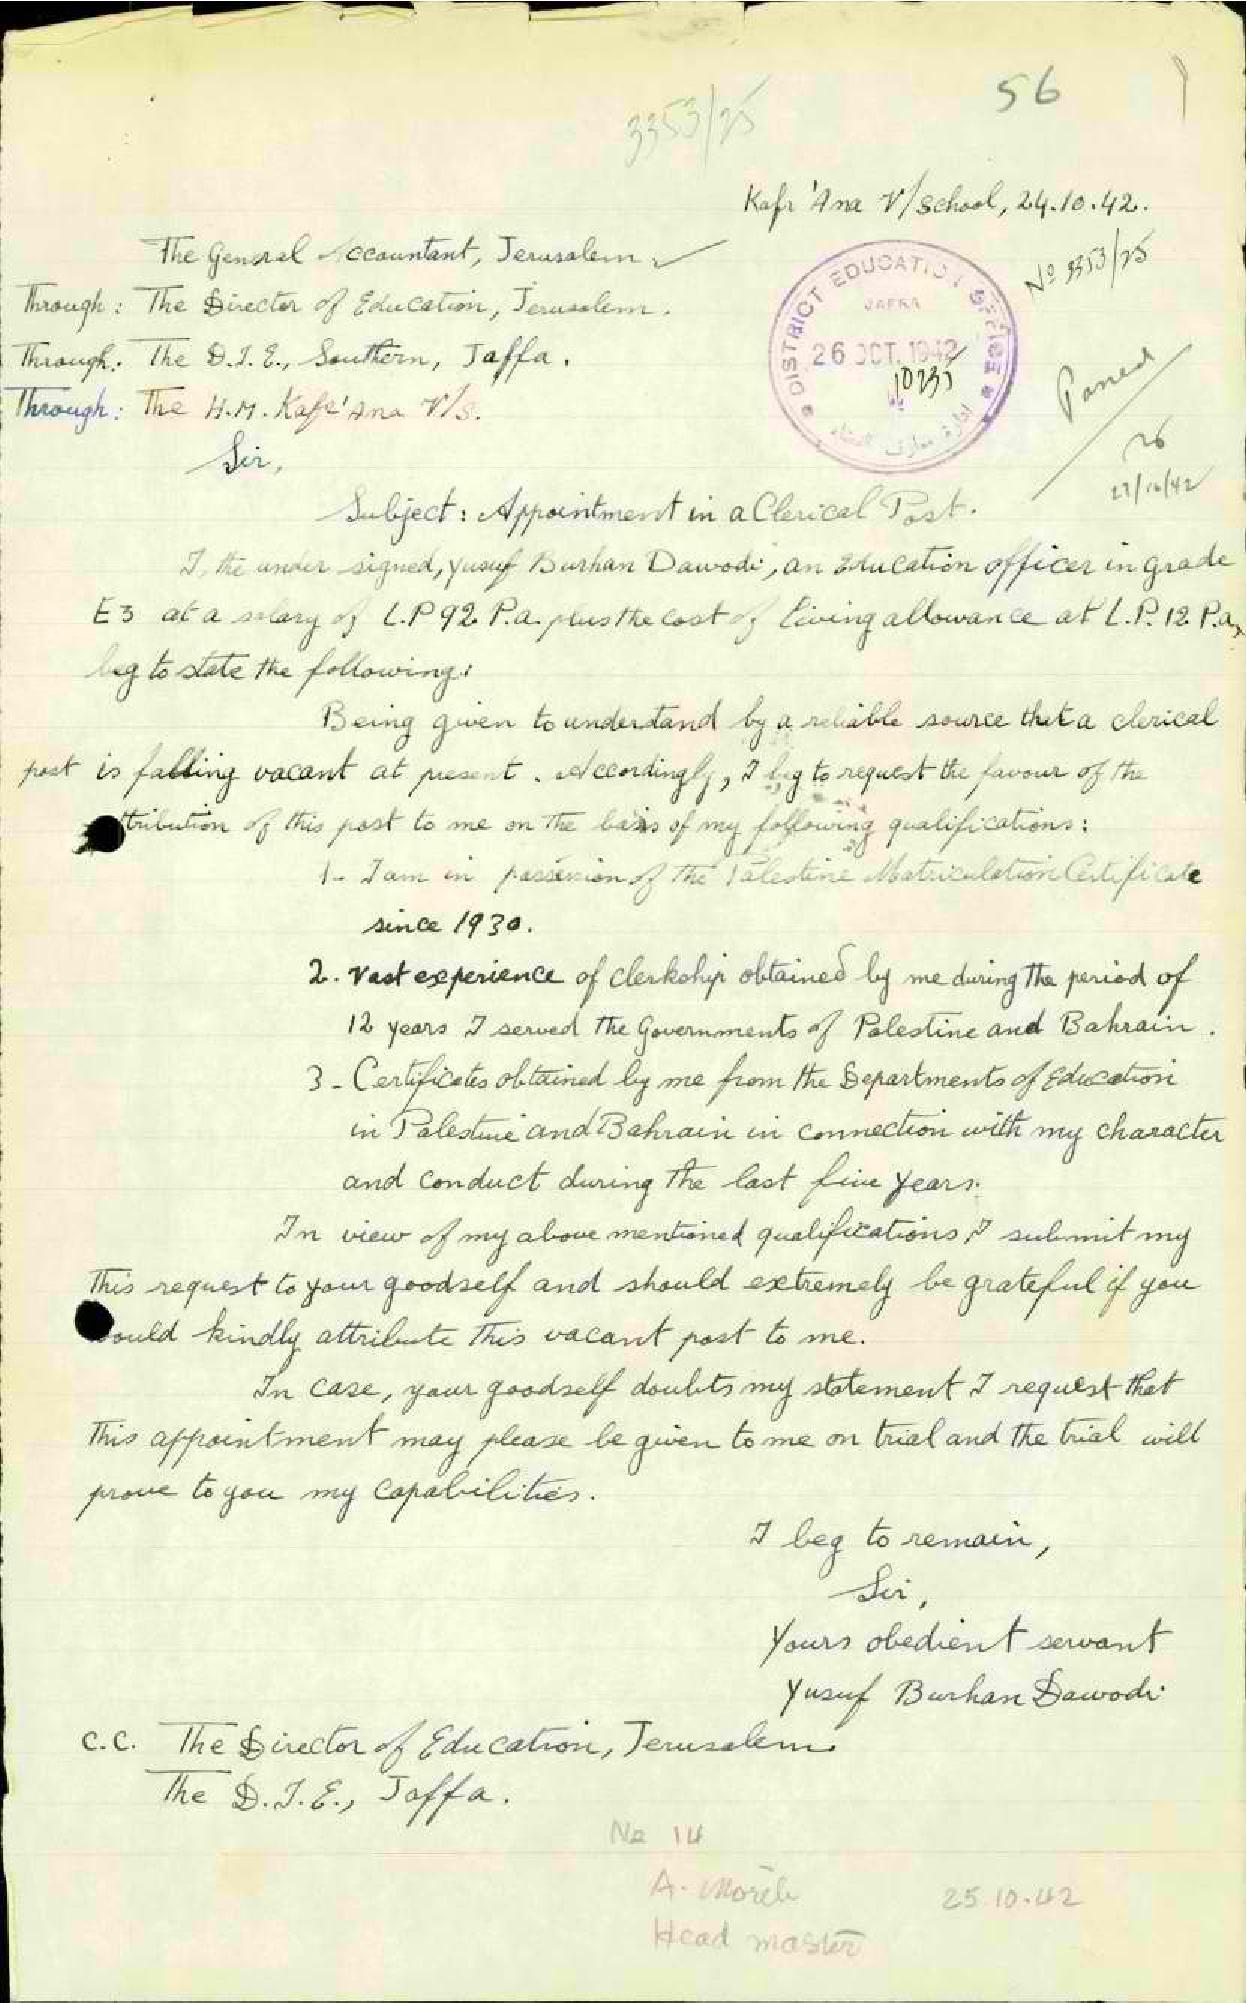 56
3353/25
Kafr 'Ana V/School, 24.10.42.
The General Accountant, Jerusalem
No 3353/25
Through: The Director of Education, Jerusalem.
Through: The D.I.E., Southern, Jaffa.
Through: The H.M. Kafr 'Ana V/S.
DISTRICT EDUCATION OFFICE
JAFFA
26 OCT. 1942
10235
26
27/10/42
Sir,
Subject: Appointment in a Clerical Post.
I, the under signed, Yusuf Burhan Dawodi, an Education officer in grade
E3 at a salary of L.P 92 P.a. plus the cost of living allowance at L.P. 12 P.a,
beg to state the following:
Being given to understand by a reliable source that a clerical
post is falling vacant at present. Accordingly, I beg to request the favour of the
ttribution of this post to me on the basis of my following qualifications:
1- I am in possession of the Palestine Matriculation Certificate
since 1930.
2. Vast experience of clerkship obtained by me during the period of
12 years I served the Governments of Palestine and Bahrain.
3- Certificates obtained by me from the Departments of Education
in Palestine and Bahrain in connection with my character
and conduct during the last five years.
In view of my above mentioned qualifications, I submit my
this request to your goodself and should extremely be grateful if you
would kindly attribute this vacant post to me.
In case, your goodself doubts my statement I request that
this appointment may please be given to me on trial and the trial will
prove to you my capabilities.
I beg to remain,
Sir,
Yours obedient servant
Yusuf Burhan Dawodi
C.C. The Director of Education, Jerusalem.
The D.I.E., Jaffa.
No 14
A. Moreh
25.10.42
Head master